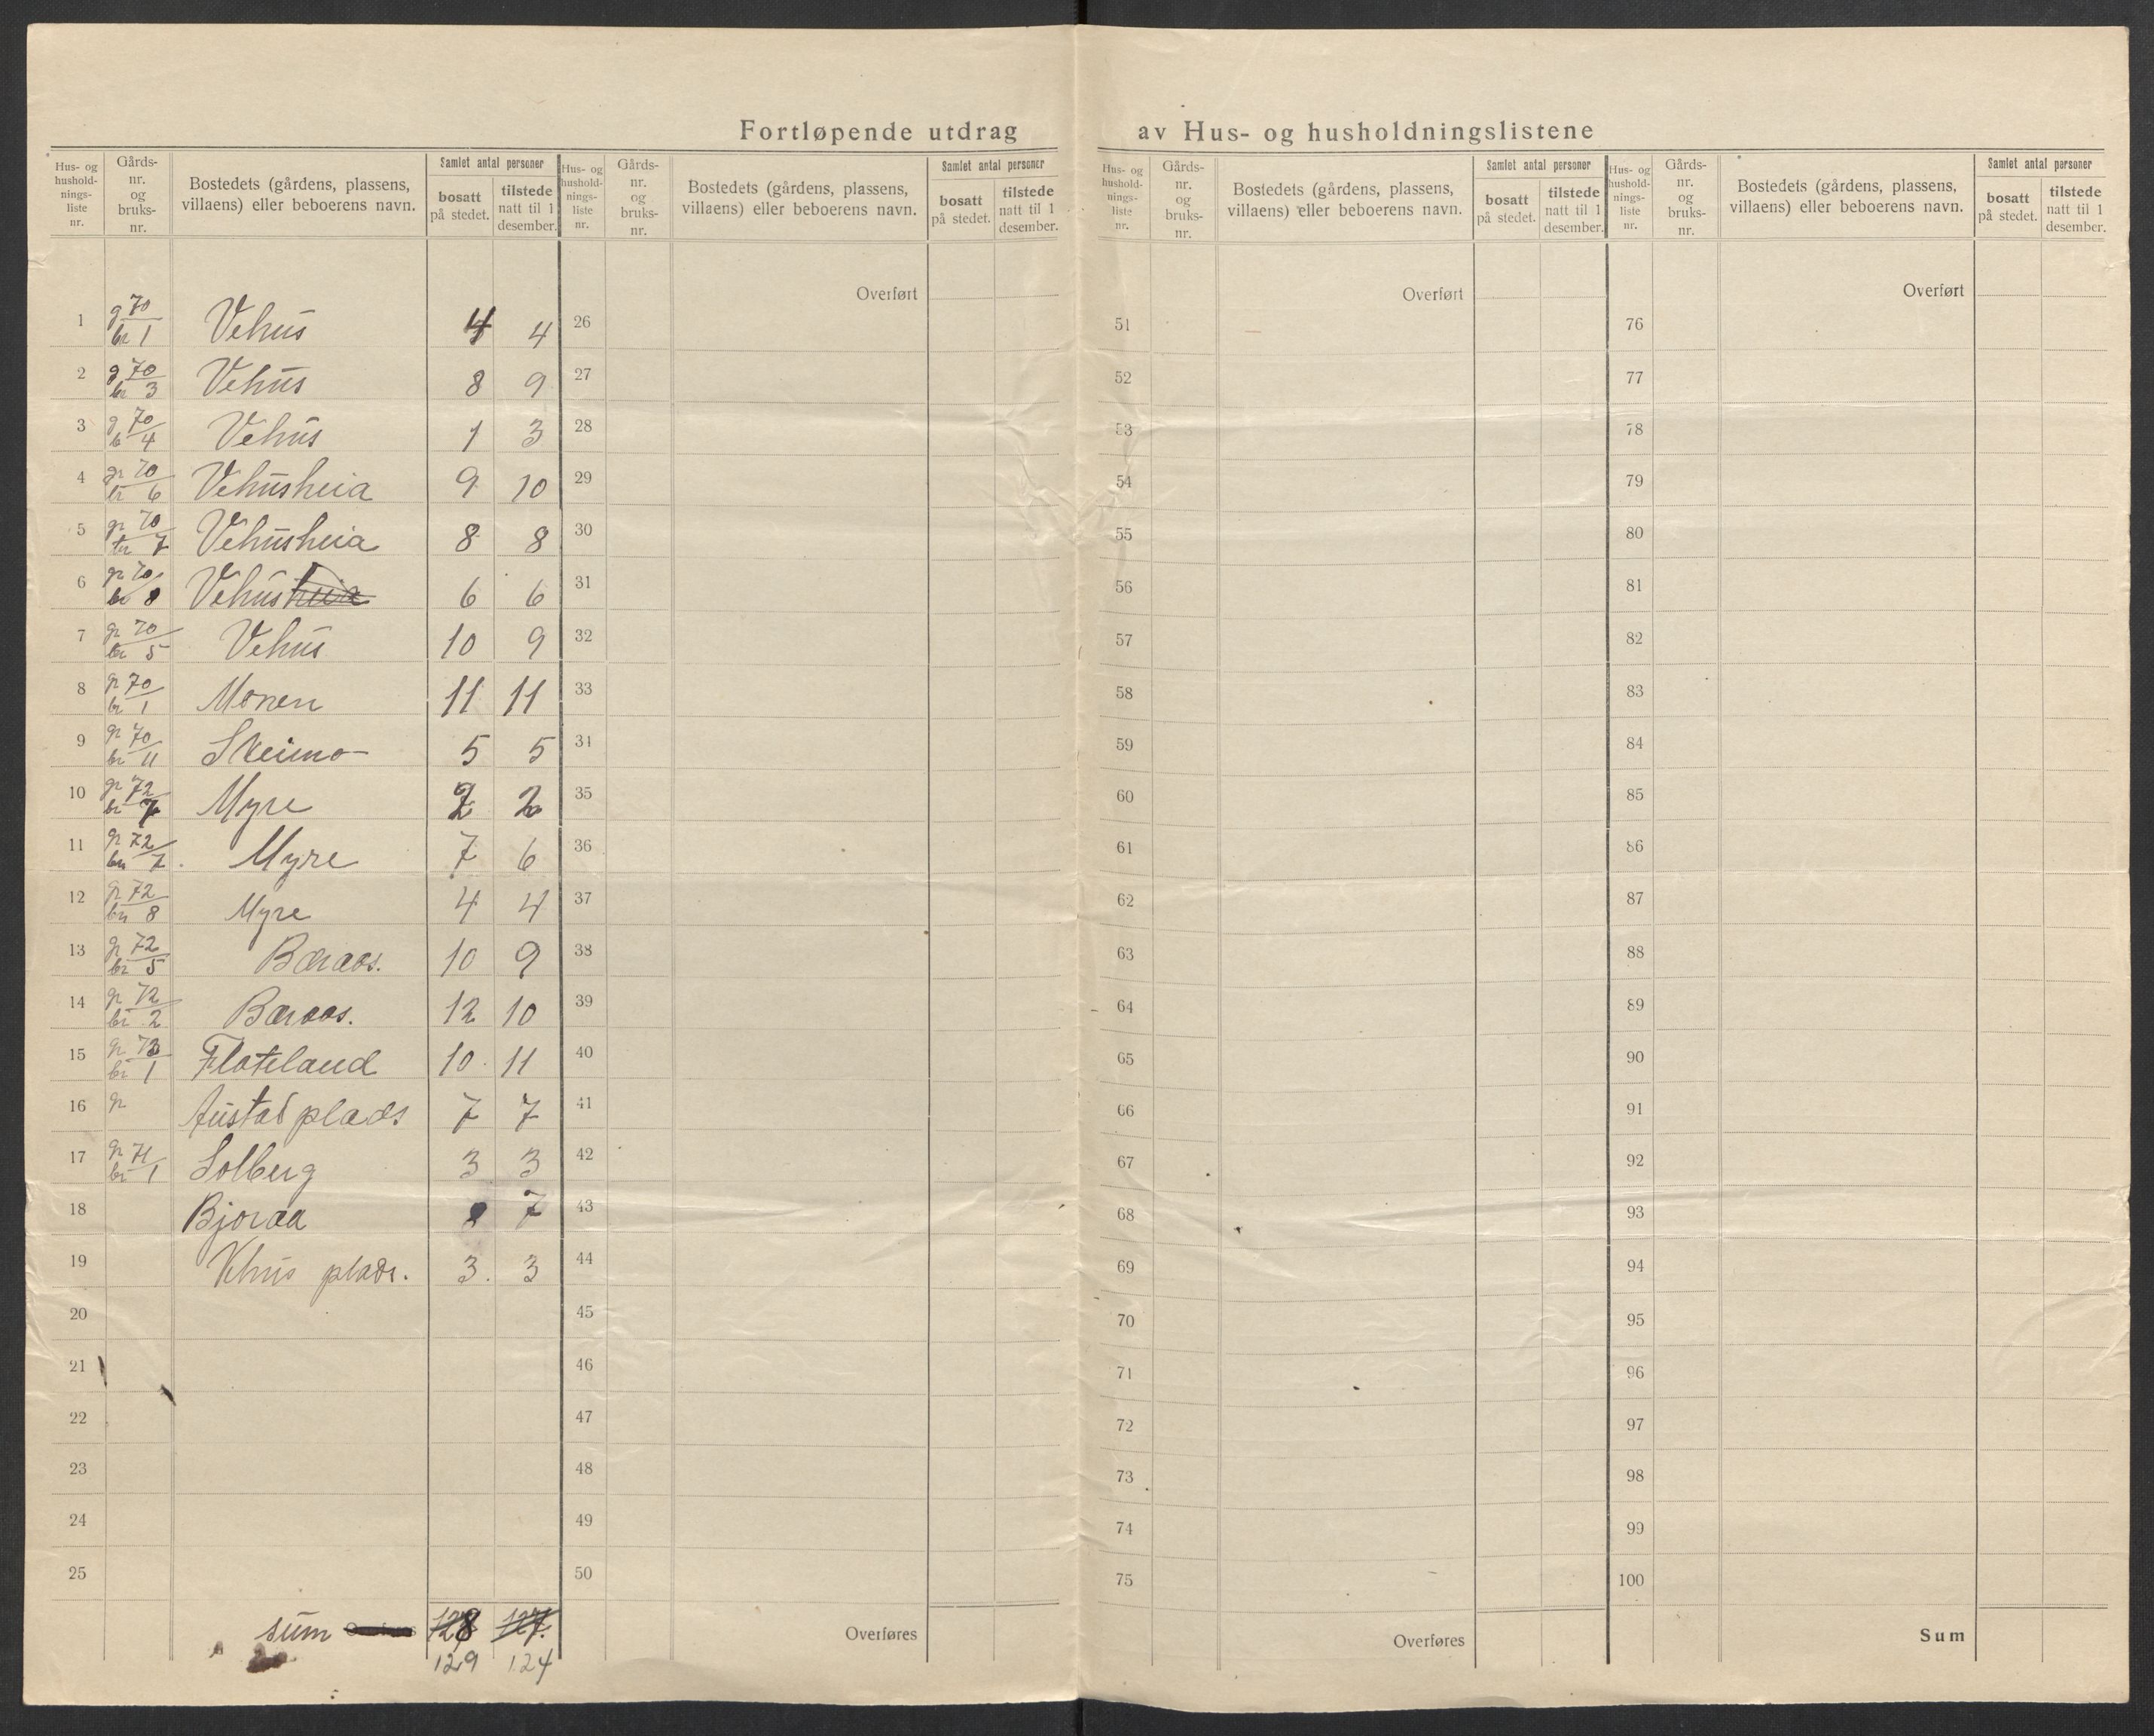 Fortløpende utdrag av Hus- og husholdningslistene
Hus- og hushold- nings- liste nr. | Gårds- nr. og bruks- nr. | Bostedets (gårdens, plassens, villaens) eller beboerens navn. | Samlet antal personer | bosatt på stedet. | tilstede natt til 1 desember.
Hus- og hushold- nings- liste nr. | Gårds- nr. og bruks- nr. | Bostedets (gårdens, plassens, villaens) eller beboerens navn. | Samlet antal personer | bosatt på stedet. | tilstede natt til 1 desember.
Hus- og hushold- nings- liste nr. | Gårds- nr. og bruks- nr. | Bostedets (gårdens, plassens, villaens) eller beboerens navn. | Samlet antal personer | bosatt på stedet. | tilstede natt til 1 desember.
Hus- og hushold- nings- liste nr. | Gårds- nr. og bruks- nr. | Bostedets (gårdens, plassens, villaens) eller beboerens navn. | Samlet antal personer | bosatt på stedet. | tilstede natt til 1 desember.
1 g 70 br 1 Vehus 4 4
2 g 70 br 3 Vehus 8 9
3 g 70 b 4 Vehus 1 3
4 gr 70 br 6 Vehusheia 9 10
5 gr 70 br 7 Vehusheia 8 8
6 gr 70 br 8 Vehusheia 6 6
7 gr 70 br 5 Vehus 10 9
8 gr 70 br 1 Monen 11 11
9 gr 70 br 11 Skeimo 5 5
10 gr 72 br 7 Myre 2 2
11 gr 72 br 7. Myre 7 6
12 gr 72 br 8 Myre 4 4
13 gr 72 br 5 Bæraas. 10 9
14 gr 72 br 2 Bæraas. 12 10
15 gr 73 br 1 Flateland 10 11
16 gr Austad plads 7 7
17 gr 71 br 1 Solberg 3 3
18 Bjoraa 7
19 Vehus plads. 3. 3
20
21
22
23
24
25
sum 128 127.
129 124
Overført
26
27
28
29
30
31
32
33
34
35
36
37
38
39
40
41
42
43
44
45
46
47
48
49
50
Overføres
Overført
51
52
53
54
55
56
57
58
59
60
61
62
63
64
65
66
67
68
69
70
71
72
73
74
75
Overføres
Overført
76
77
78
79
80
81
82
83
84
85
86
87
88
89
90
91
92
93
94
95
96
97
98
99
100
Sum